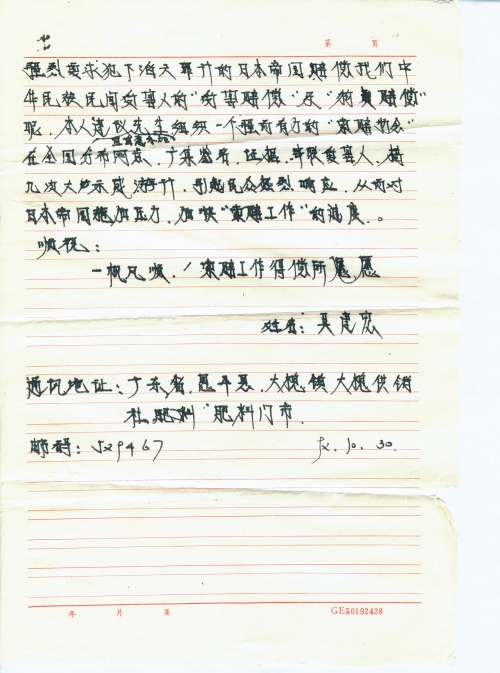 第 页
强烈要求犯下滔天罪行的日本帝国赔偿我们中
华民族民间受害人的“受害赔偿”及“物质赔偿”
呢.本人建议先生组织一个强而有力的“索赔协会”
在全国分布网点.广东鉴名.证据.串联受害人,搞
几次大的示威游行,引起民众强烈响应,从而对
日本帝国施加压力,加快“索赔工作”的速度.。
顺祝:
一帆风顺.!索赔工作得偿所愿
姓名:吴建宏
通讯地址:广东省.恩平县.大槐镇大槐供销
社.肥料“肥料门市.
邮码:529467
92.10.30.
年 月 日
GE50192428